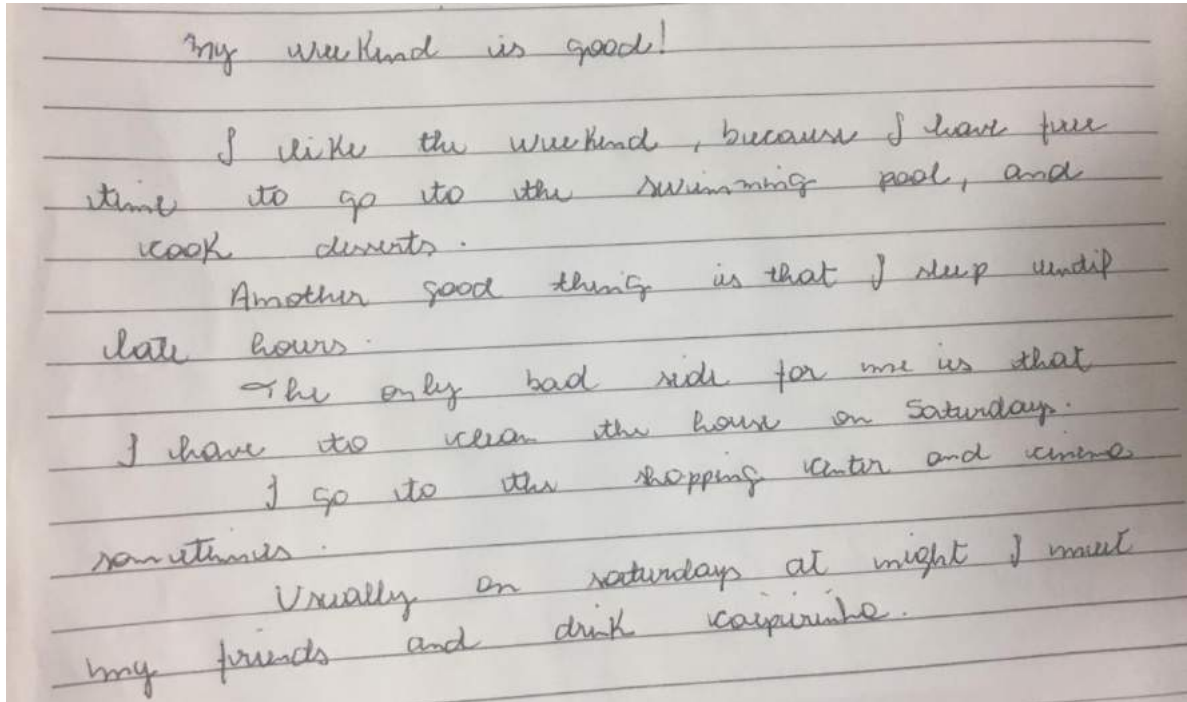 My weekend is good!
I like the weekend, because I have free
time to go to the swimming pool, and
cook desserts.
Another good thing is that I sleep until
late hours.
The only bad side for me is that
I have to clean the house on Saturdays.
I go to the shopping center and cinema
sometimes.
Usually on saturdays at night I meet
my friends and drink caipirinha.